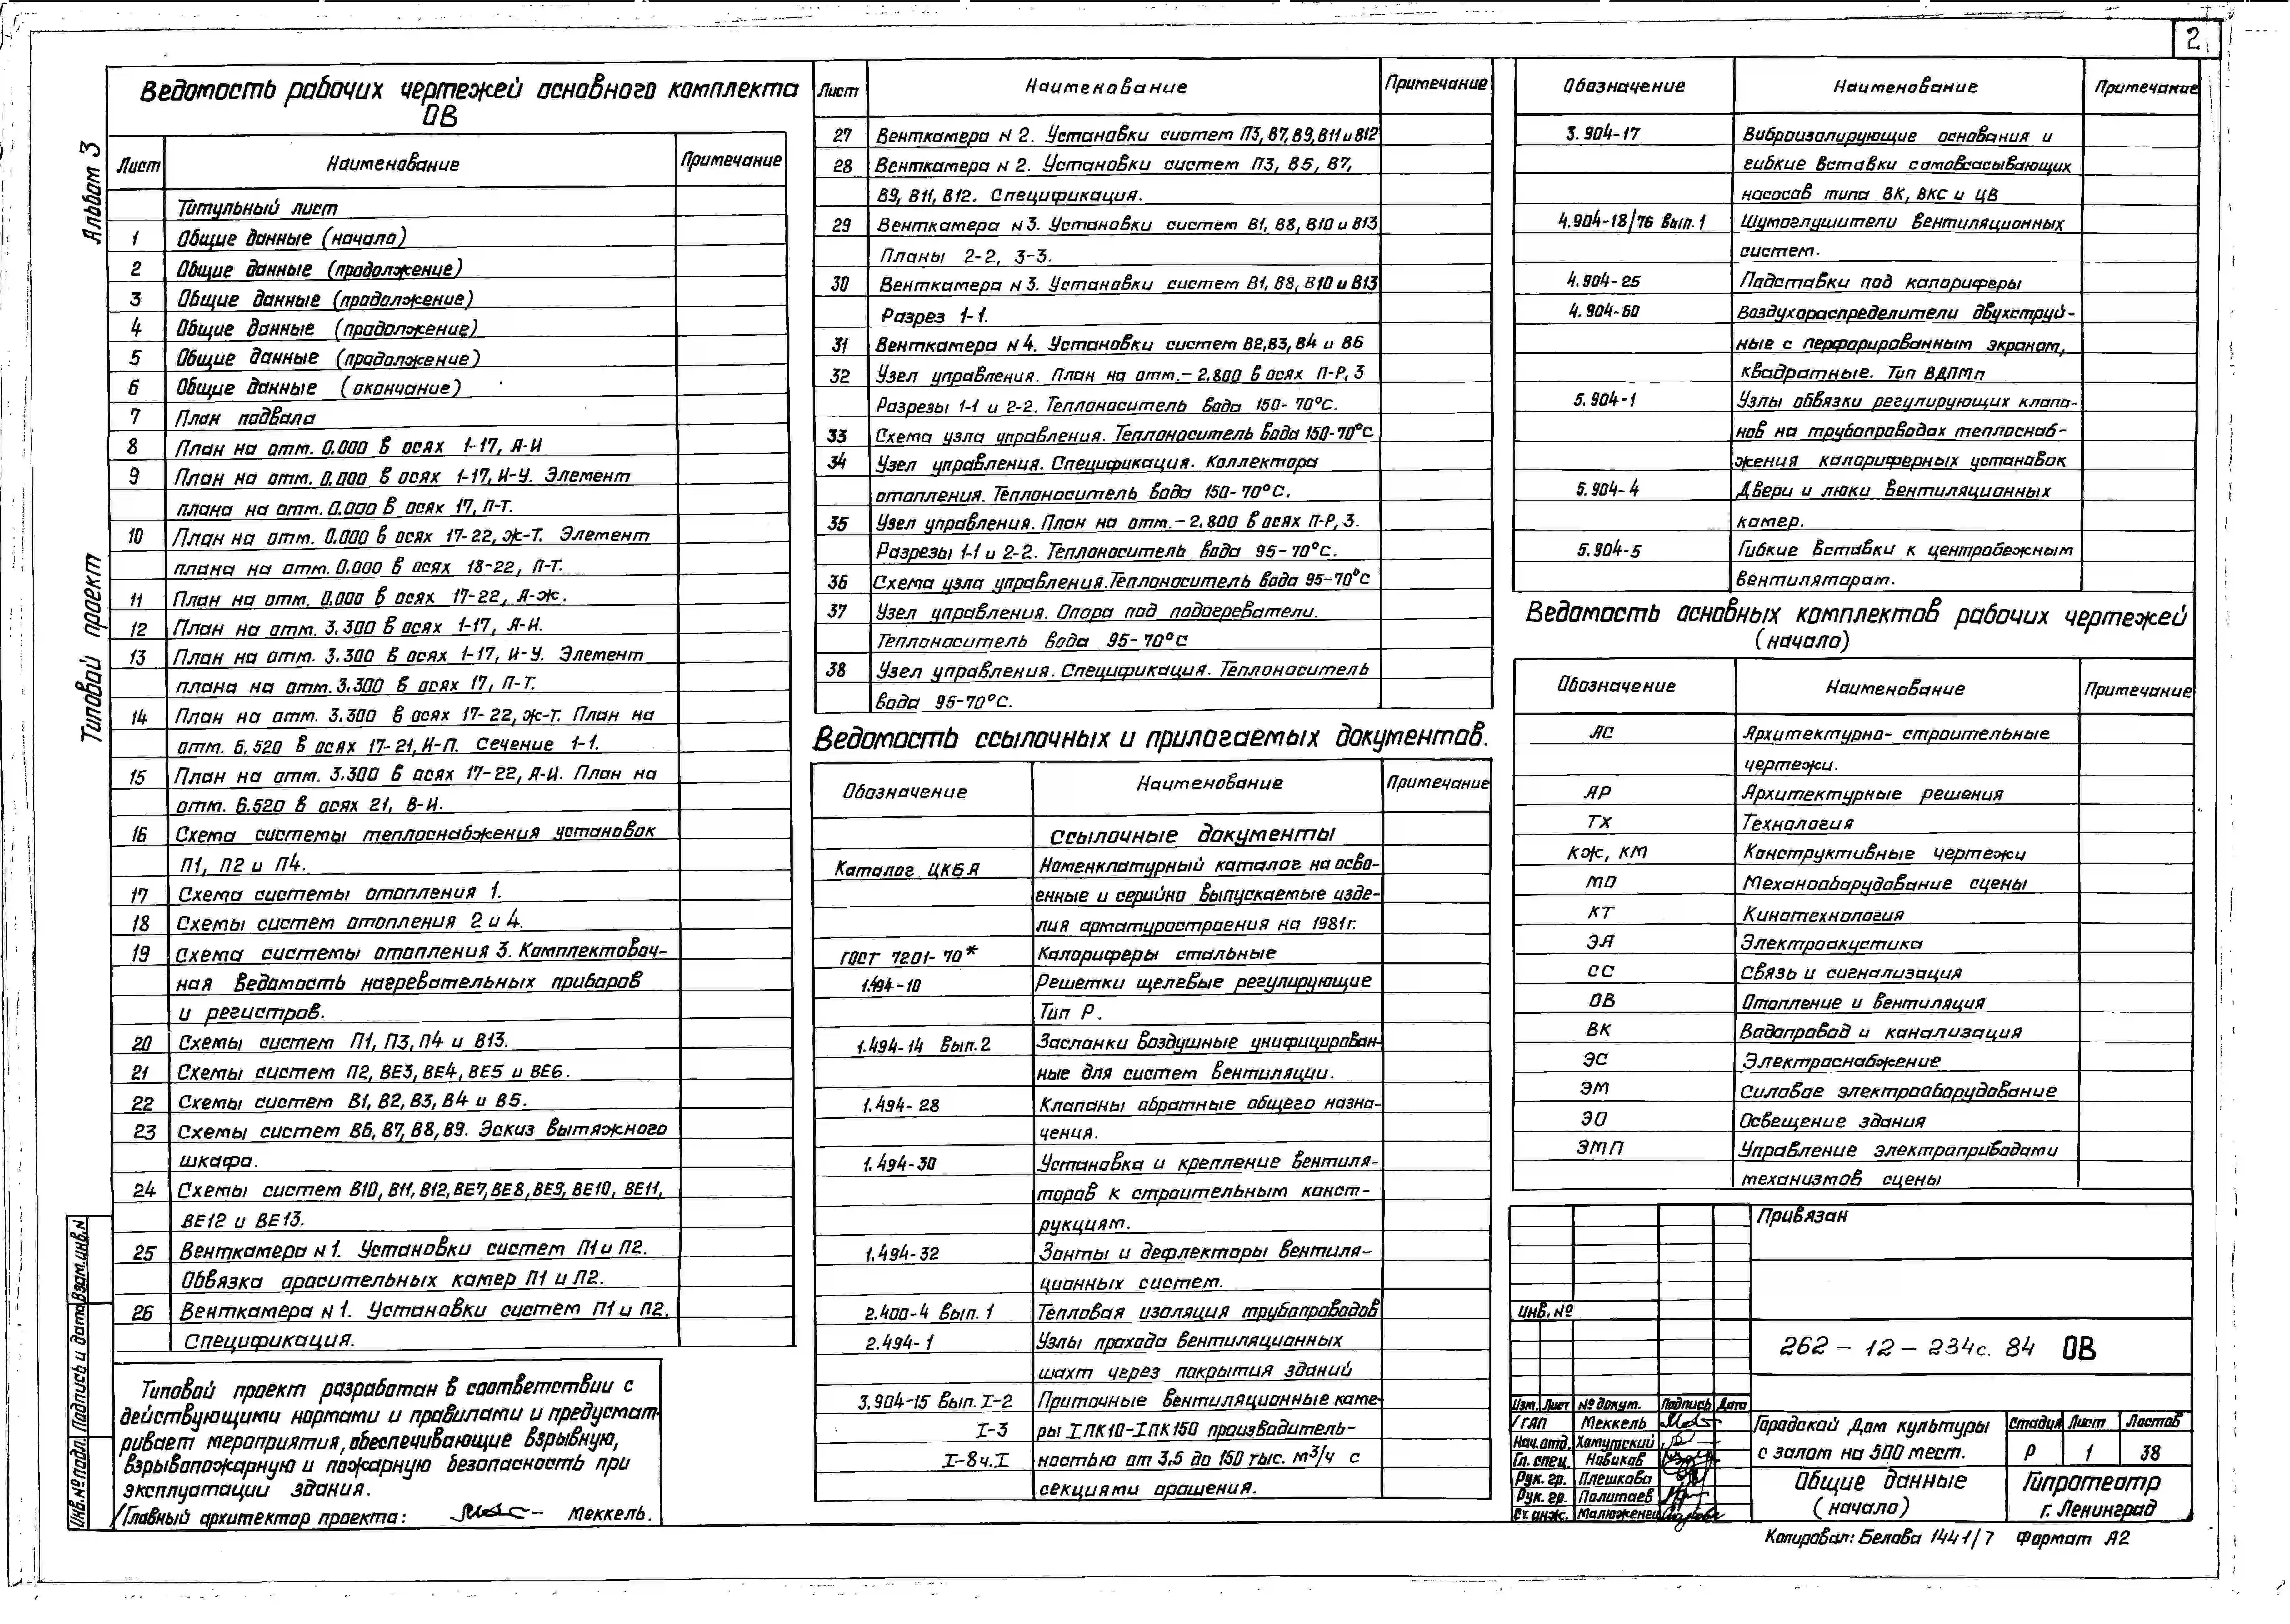 2
Альбом 3
Типовой проект
Ведомость рабочих чертежей основного комплекта
ОВ
Лист Наименование Примечание
Титульный лист
1 Общие данные (начало)
2 Общие данные (продолжение)
3 Общие данные (продолжение)
4 Общие данные (продолжение)
5 Общие данные (продолжение)
6 Общие данные (окончание)
7 План подвала
8 План на отм. 0.000 в осях 1-17, А-И
9 План на отм. 0.000 в осях 1-17, И-У. Элемент
плана на отм. 0.000 в осях 17, П-Т.
10 План на отм. 0.000 в осях 17-22, Ж-Т. Элемент
плана на отм. 0.000 в осях 18-22, П-Т.
11 План на отм. 0.000 в осях 17-22, А-Ж.
12 План на отм. 3.300 в осях 1-17, А-И.
13 План на отм. 3.300 в осях 1-17, И-У. Элемент
плана на отм. 3.300 в осях 17, П-Т.
14 План на отм. 3.300 в осях 17-22, Ж-Т. План на
отм. 6.520 в осях 17-21, И-П. Сечение 1-1.
15 План на отм. 3.300 в осях 17-22, А-И. План на
отм. 6.520 в осях 21, В-И.
16 Схема системы теплоснабжения установок
П1, П2 и П4.
17 Схема системы отопления 1.
18 Схемы систем отопления 2 и 4.
19 Схема системы отопления 3. Комплектовоч-
ная ведомость нагревательных приборов
и регистров.
20 Схемы систем П1, П3, П4 и В13.
21 Схемы систем П2, ВЕ3, ВЕ4, ВЕ5 и ВЕ6.
22 Схемы систем В1, В2, В3, В4 и В5.
23 Схемы систем В6, В7, В8, В9. Эскиз вытяжного
шкафа.
24 Схемы систем В10, В11, В12, ВЕ7, ВЕ8, ВЕ9, ВЕ10, ВЕ11,
ВЕ12 и ВЕ13.
25 Венткамера N 1. Установки систем П1 и П2.
Обвязка оросительных камер П1 и П2.
26 Венткамера N 1. Установки систем П1 и П2.
Спецификация.
Типовой проект разработан в соответствии с
действующими нормами и правилами и предусмат-
ривает мероприятия, обеспечивающие взрывную,
взрывопожарную и пожарную безопасность при
эксплуатации здания.
/Главный архитектор проекта: Меккель.
Инв.№подл. Подпись и дата Взам.инв.N
Лист Наименование Примечание
27 Венткамера N 2. Установки систем П3, В7, В9, В11 и В12
28 Венткамера N 2. Установки систем П3, В5, В7,
В9, В11, В12. Спецификация.
29 Венткамера N 3. Установки систем В1, В8, В10 и В13
Планы 2-2, 3-3.
30 Венткамера N 3. Установки систем В1, В8, В10 и В13
Разрез 1-1.
31 Венткамера N 4. Установки систем В2, В3, В4 и В6
32 Узел управления. План на отм.-2.800 в осях П-Р, 3
Разрезы 1-1 и 2-2. Теплоноситель вода 150-70°С.
33 Схема узла управления. Теплоноситель вода 150-70°С
34 Узел управления. Спецификация. Коллектора
отопления. Теплоноситель вода 150-70°С.
35 Узел управления. План на отм.-2.800 в осях П-Р, 3.
Разрезы 1-1 и 2-2. Теплоноситель вода 95-70°С.
36 Схема узла управления. Теплоноситель вода 95-70°С
37 Узел управления. Опора под подогреватели.
Теплоноситель вода 95-70°С
38 Узел управления. Спецификация. Теплоноситель
вода 95-70°С.
Ведомость ссылочных и прилагаемых документов.
Обозначение Наименование Примечание
Ссылочные документы
Каталог ЦКБА Номенклатурный каталог на осво-
енные и серийно выпускаемые изде-
лия арматуростроения на 1981г.
ГОСТ 7201-70* Калориферы стальные
1.494-10 Решетки щелевые регулирующие
Тип Р.
1.494-14 Вып.2 Заслонки воздушные унифицирован-
ные для систем вентиляции.
1.494-28 Клапаны обратные общего назна-
чения.
1.494-30 Установка и крепление вентиля-
торов к строительным конст-
рукциям.
1.494-32 Зонты и дефлекторы вентиля-
ционных систем.
2.400-4 Вып. 1 Тепловая изоляция трубопроводов
2.494-1 Узлы прохода вентиляционных
шахт через покрытия зданий
3.904-15 Вып. I-2 Приточные вентиляционные каме-
I-3 ры IПК10-IПК150 производитель-
I-8ч.I ностью от 3,5 до 150 тыс. м³/ч с
секциями орошения.
Обозначение Наименование Примечание
3.904-17 Виброизолирующие основания и
гибкие вставки самовсасывающих
насосов типа ВК, ВКС и ЦВ
4.904-18/76 Вып.1 Шумоглушители вентиляционных
систем.
4.904-25 Подставки под калориферы
4.904-60 Воздухораспределители двухструй-
ные с перфорированным экраном,
квадратные. Тип ВДПМп
5.904-1 Узлы обвязки регулирующих клапа-
нов на трубопроводах теплоснаб-
жения калориферных установок
5.904-4 Двери и люки вентиляционных
камер.
5.904-5 Гибкие вставки к центробежным
вентиляторам.
Ведомость основных комплектов рабочих чертежей
(начало)
Обозначение Наименование Примечание
АС Архитектурно-строительные
чертежи.
АР Архитектурные решения
ТХ Технология
КЖ, КМ Конструктивные чертежи
МО Механооборудование сцены
КТ Кинотехнология
ЭА Электроакустика
СС Связь и сигнализация
ОВ Отопление и вентиляция
ВК Водопровод и канализация
ЭС Электроснабжение
ЭМ Силовое электрооборудование
ЭО Освещение здания
ЭМП Управление электроприводами
механизмов сцены
Привязан
Инв. №
262-12-234с. 84 ОВ
Изм. Лист № докум. Подпись Дата
/ГАП Меккель
Нач.отд. Хомутский
Гл. спец. Новиков
Рук. гр. Плешкова
Рук. гр. Политаев
Ст. инж. Малюженец
Городской Дом культуры
с залом на 500 мест.
Стадия Лист Листов
Р 1 38
Общие данные
(начало)
Гипротеатр
г. Ленинград
Копировал: Белова 1441/7 Формат А2